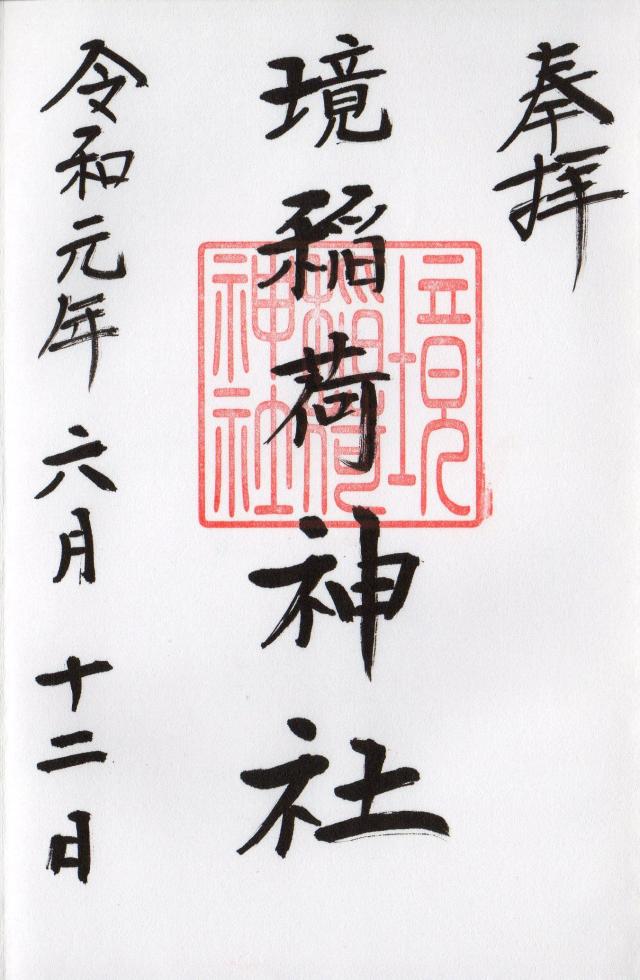 奉拝
境稲荷神社
境稲荷神社
令和元年六月十二日